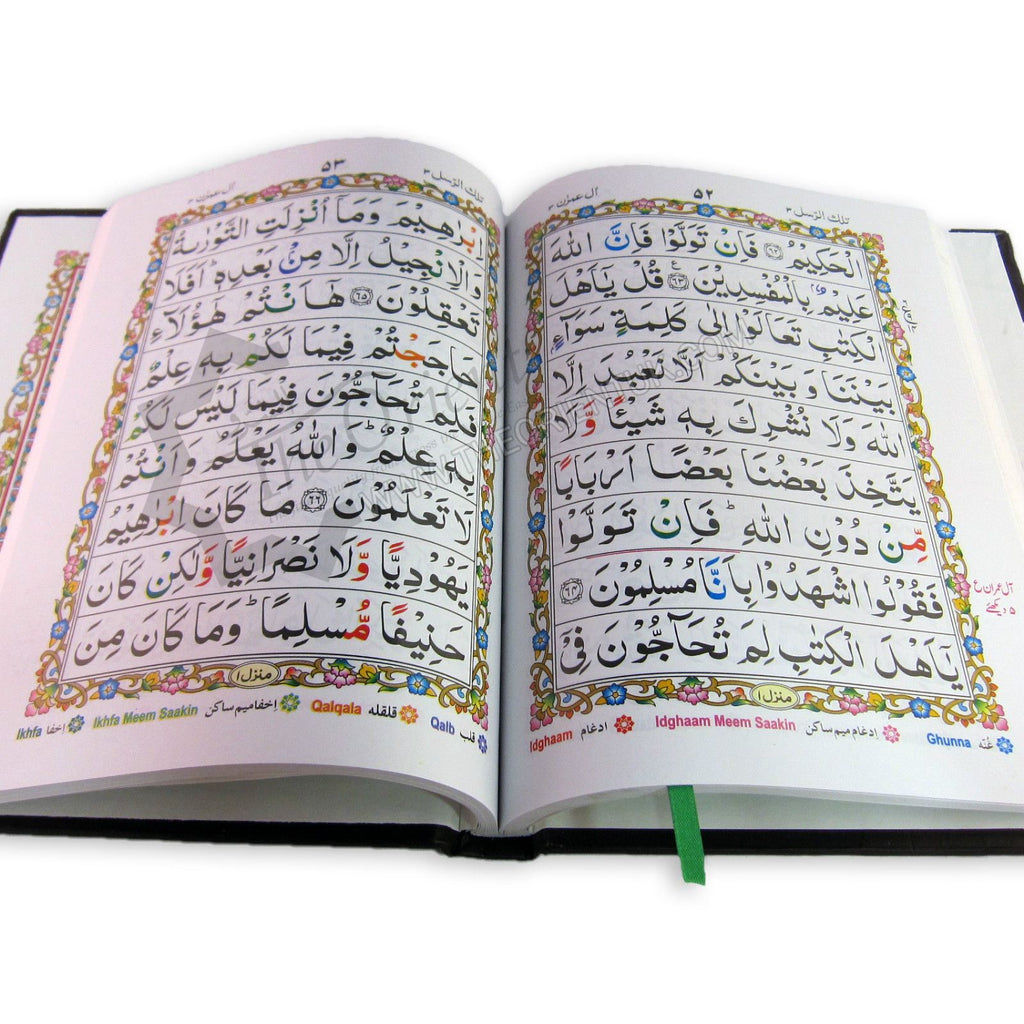 تلك الرسل ٣
٥٢
آل عمرٰن ٣
الْحَكِيْمُ ﴿٦٢﴾ فَاِنْ تَوَلَّوْا فَاِنَّ اللّٰهَ
عَلِيْمٌۢ بِالْمُفْسِدِيْنَ ﴿٦٣﴾ قُلْ يٰۤاَهْلَ
الْكِتٰبِ تَعَالَوْا اِلٰى كَلِمَةٍ سَوَآءٍۭ
بَيْنَنَا وَ بَيْنَكُمْ اَلَّا نَعْبُدَ اِلَّا
اللّٰهَ وَلَا نُشْرِكَ بِهٖ شَيْـًٔا وَّلَا
يَتَّخِذَ بَعْضُنَا بَعْضًا اَرْبَابًا
مِّنْ دُوْنِ اللّٰهِ ؕ فَاِنْ تَوَلَّوْا
فَقُوْلُوا اشْهَدُوْا بِاَنَّا مُسْلِمُوْنَ ﴿٦٤﴾
يٰۤاَهْلَ الْكِتٰبِ لِمَ تُحَآجُّوْنَ فِيْۤ
منزل ١
Ghunna غُنّه
Idghaam Meem Saakin اِدغام ميم ساكن
Idghaam ادغام
تلك الرسل ٣
٥٣
آل عمرٰن ٣
اِبْرٰهِيْمَ وَمَاۤ اُنْزِلَتِ التَّوْرٰىةُ
وَالْاِنْجِيْلُ اِلَّا مِنْۢ بَعْدِهٖ ؕ اَفَلَا
تَعْقِلُوْنَ ﴿٦٥﴾ هٰۤاَنْتُمْ هٰۤؤُلَآءِ
حَاجَجْتُمْ فِيْمَا لَكُمْ بِهٖ عِلْمٌ
فَلِمَ تُحَآجُّوْنَ فِيْمَا لَيْسَ لَكُمْ
بِهٖ عِلْمٌ ؕ وَاللّٰهُ يَعْلَمُ وَاَنْتُمْ
لَا تَعْلَمُوْنَ ﴿٦٦﴾ مَا كَانَ اِبْرٰهِيْمُ
يَهُوْدِيًّا وَّلَا نَصْرَانِيًّا وَّلٰكِنْ كَانَ
حَنِيْفًا مُّسْلِمًا ؕ وَمَا كَانَ مِنَ
منزل ١
Qalb قلب
Qalqala قلقله
Ikhfa Meem Saakin اِخفا ميم ساكن
Ikhfa اِخفا